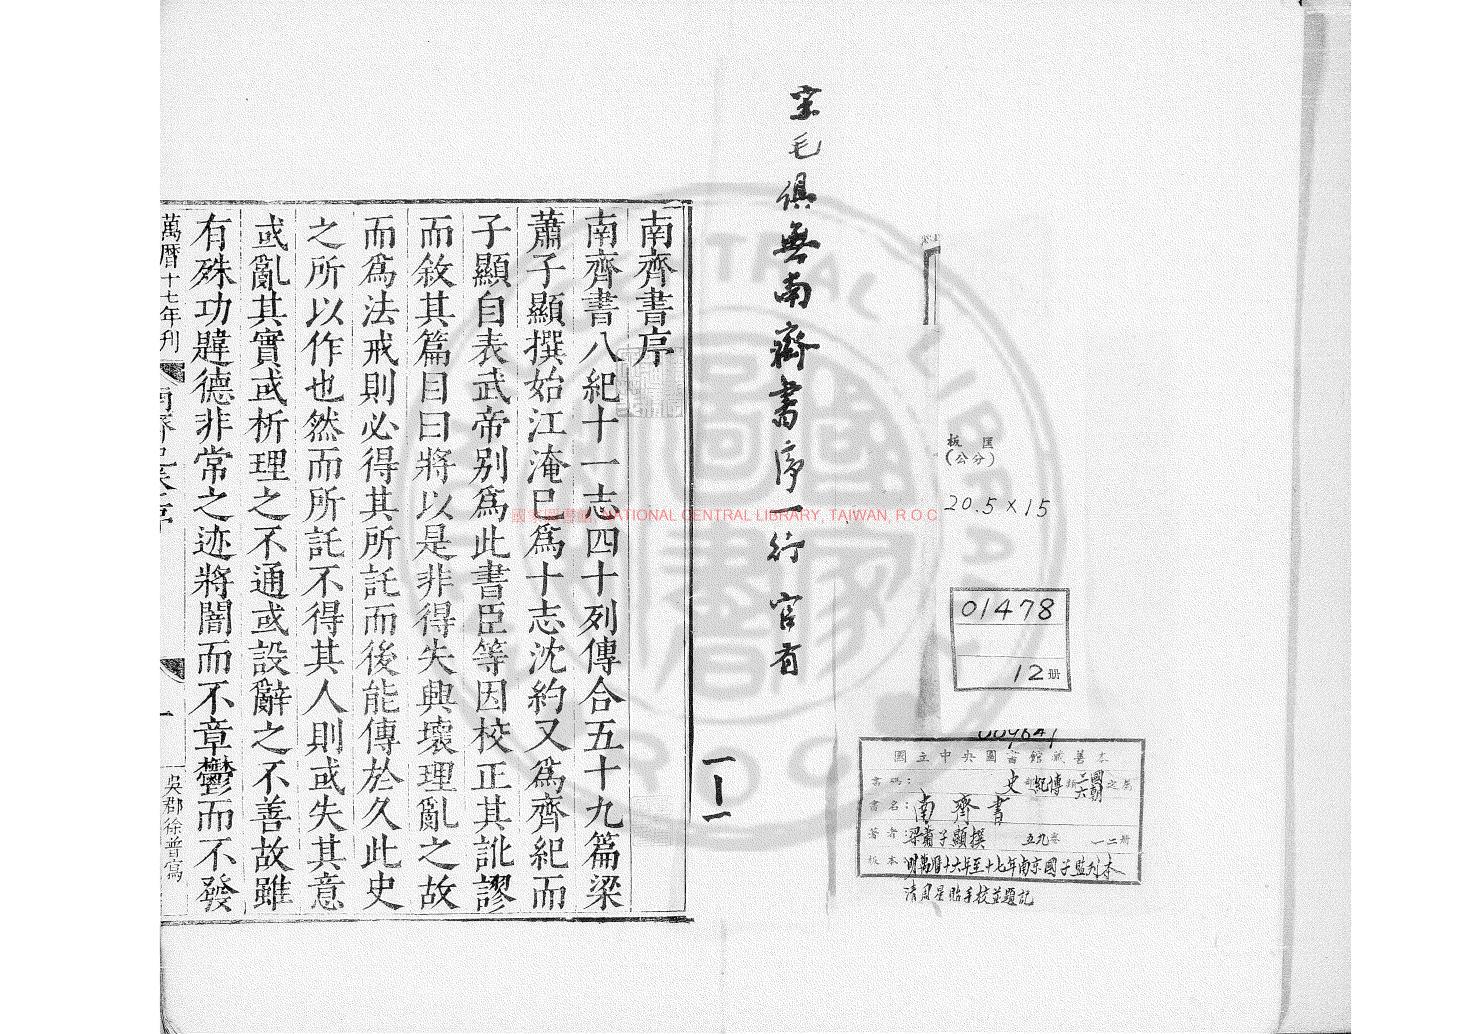 宋毛俱無南齊書序一行 官有
板匡
(公分)
20.5×15
01478
12册
009641
國立中央圖書館藏善本
書碼： 史部紀傳類二國六朝之屬
書名：南齊書
著者：梁蕭子顯撰 五九卷 一二册
板本：明萬曆十六年至十七年南京國子監刊本
清周星貽手校並題記
南齊書序
南齊書八紀十一志四十列傳合五十九篇梁
蕭子顯撰始江淹已爲十志沈約又爲齊紀而
子顯自表武帝别爲此書臣等因校正其訛謬
而敘其篇目曰將以是非得失興壞理亂之故
而爲法戒則必得其所託而後能傳於久此史
之所以作也然而所託不得其人則或失其意
或亂其實或析理之不通或設辭之不善故雖
有殊功韙德非常之迹將闇而不章鬱而不發
萬曆十七年刊
南齊書序
一
吳郡徐普寫
國家圖書館 NATIONAL CENTRAL LIBRARY, TAIWAN, R.O.C.